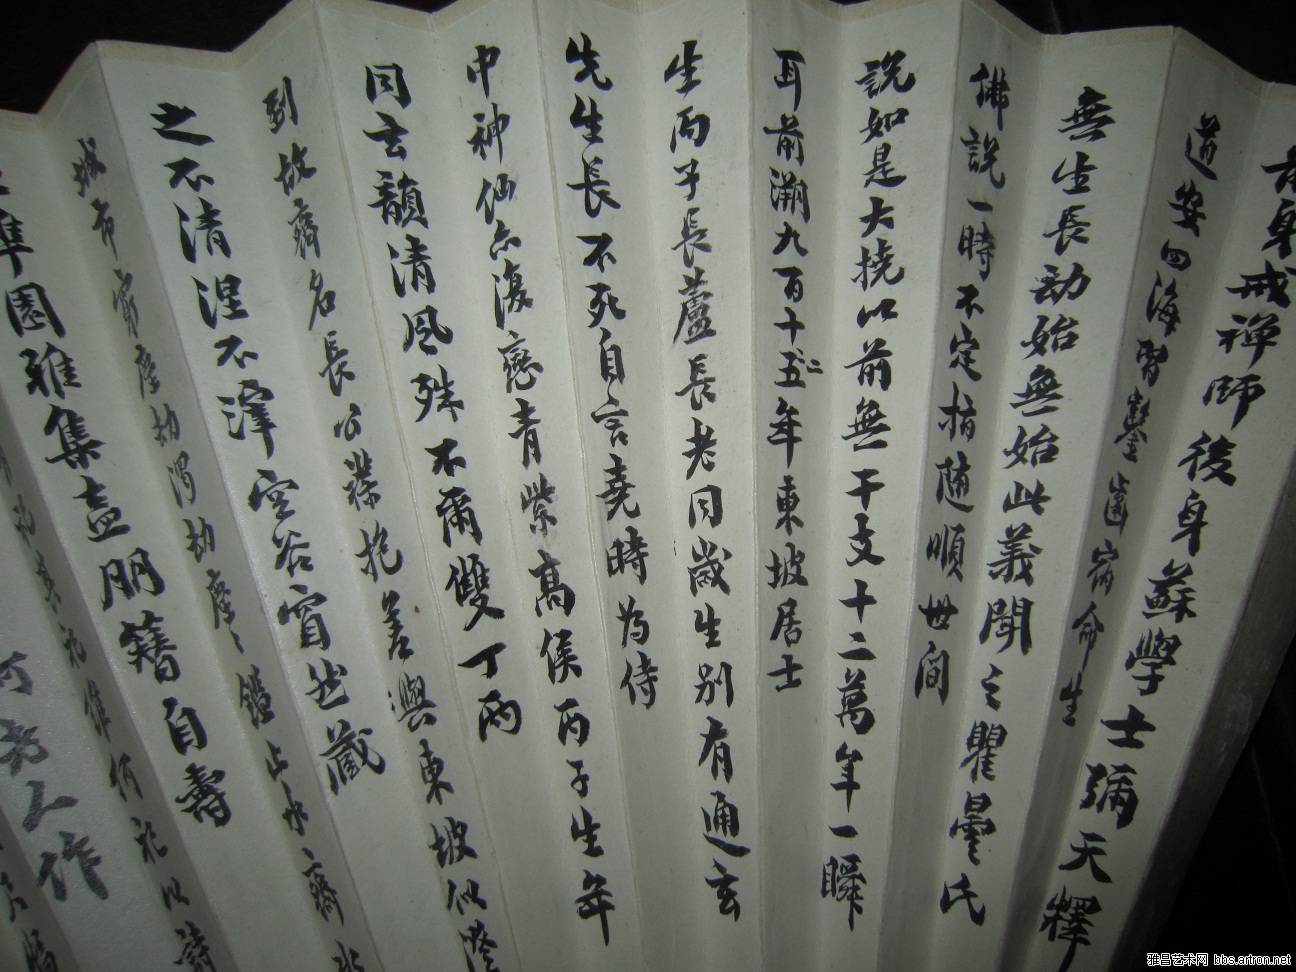 前身戒禪師後身蘇學士彌天釋
道安四海習鑿齒宿命生
無生長劫始無始此義聞之瞿曇氏
佛說一時不定指随順世間
說如是大撓以前無干支十二萬年一瞬
耳前溯九百十五二年東坡居士
生丙子長蘆長老同歲生別有通玄
先生長不死自言堯時為侍
中神仙亦復戀青紫高侯丙子生年
同玄韻清風殊不爾雙丁兩
到故齊名長公襟抱差與東坡似澄
之不清涅不滓空谷窅然藏
城市寥塵劫濁劫塵鑑止水齋
準園雅集盍朋簪自壽
以詩
老人作
雅昌艺术网 bbs.artron.net